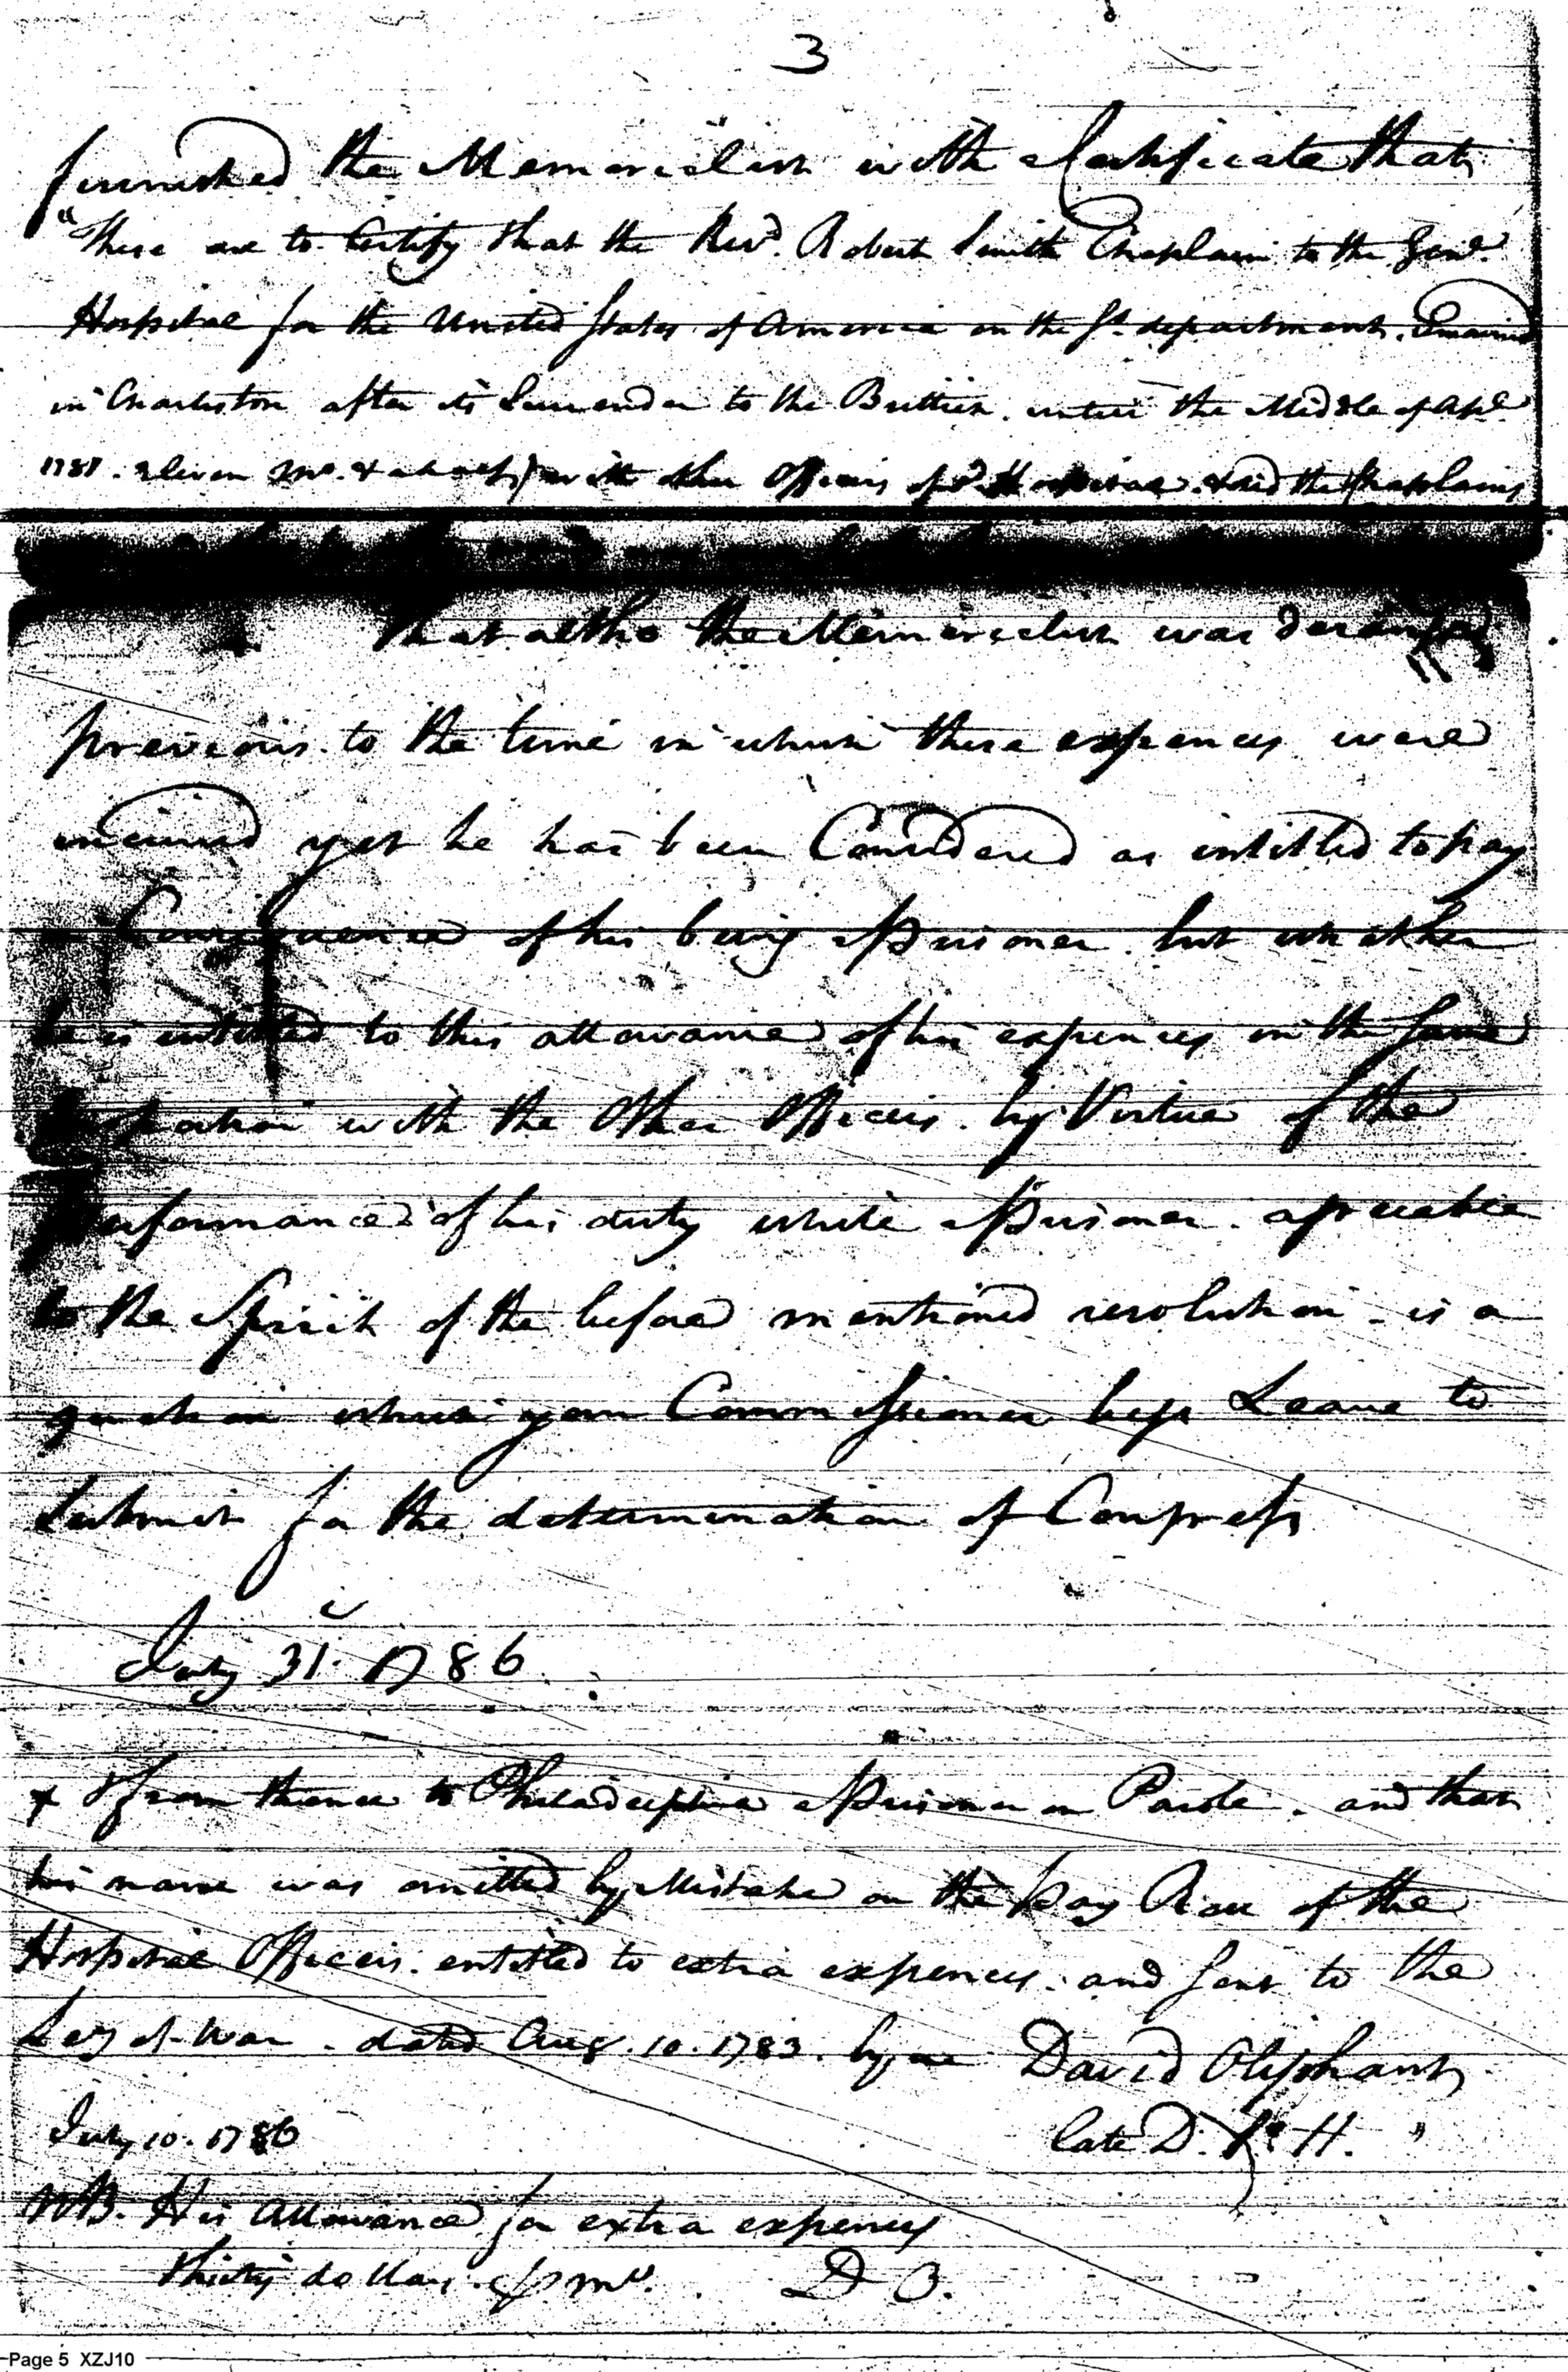 3
furnished the Memorialist with a Certificate that
"These are to Certify that the Revd. Robert Smith Chaplain to the Genl.
Hospital for the United States of America in the So. department. Remained
in Charleston after its Surrender to the Brittish. untill the Middle of Apl.
1781. eleven mo. & a half with other Officers of sd. Hospital. & did the Chaplains
That altho the Memorialist was deranged
previous to the time in which these expences were
incurred yet he has been Considered as intitled to pay
in Consequence of his being a Prisoner. but whether
he is intitled to this allowance of his expences in the same
proportion with the Other Officers. by Virtue of the
performance of his duty while a Prisoner. agreeable
to the Spirit of the before mentioned resolution - is a
question which your Commissioner begs Leave to
Submit for the determination of Congress
July 31. 1786.
+ & from thence to Philadelphia a Prisoner on Parole. and that
his name was omitted by Mistake on the pay Roll of the
Hospital Officers. entitled to extra expences. and sent to the
Secy at War. dated Aug. 10. 1783. by me David Oliphant
July 10. 1786 late D. So. H. "
NB. His Allowance for extra expences
thirty dollars. p mo. D O.
Page 5 XZJ10